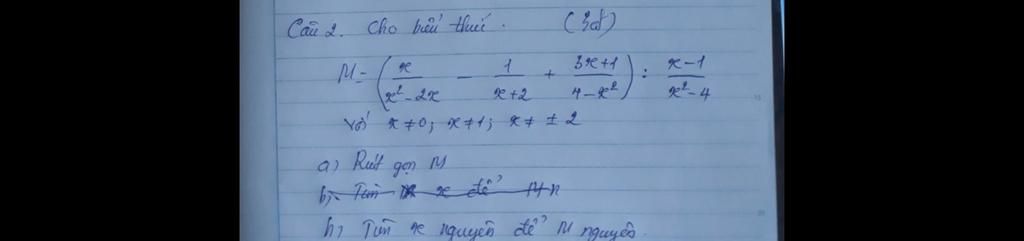 Câu 2. Cho biểu thức. (3đ)
M = (x/(x² - 2x) - 1/(x+2) + (3x+1)/(4-x²)) : (x-1)/(x²-4)
với x ≠ 0; x ≠ 1; x ≠ ± 2
a) Rút gọn M
b) Tìm x để M
b) Tìm x nguyên để M nguyên.